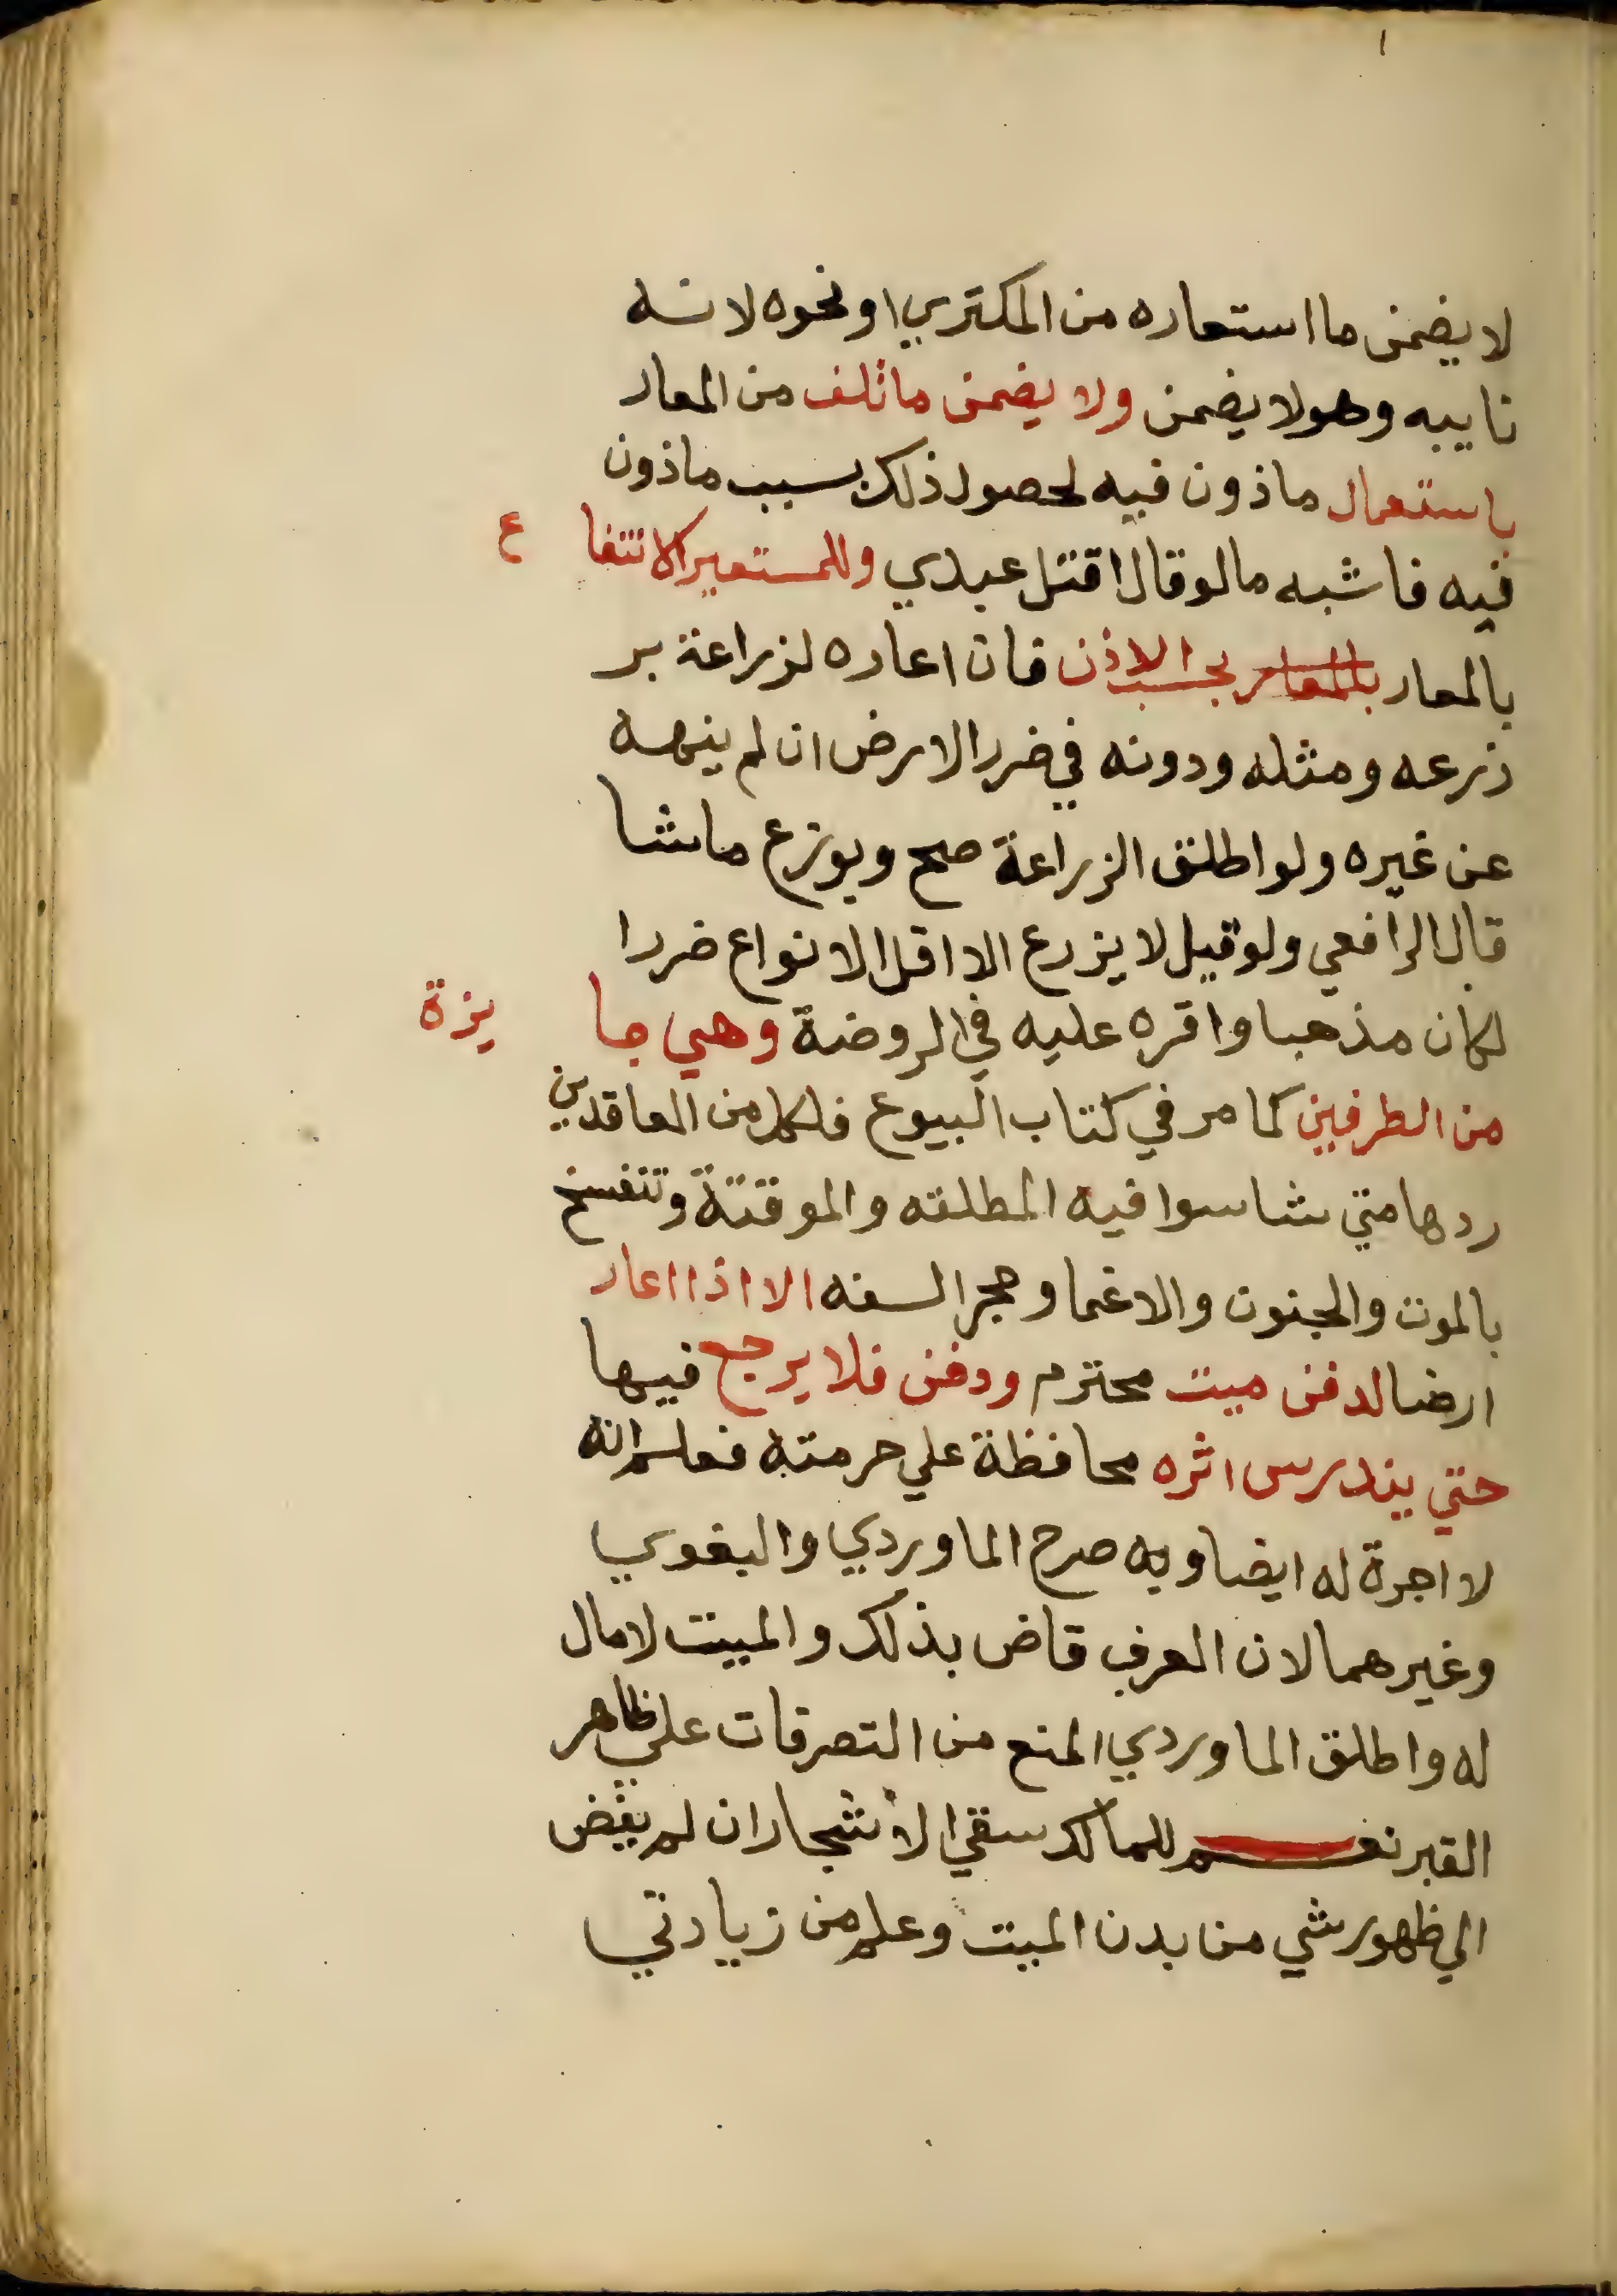 ١
لا يضمن ما استعاره من المكتري او نحوه لانه
نايبه وهو لا يضمن ولا يضمن ما تلف من المعار
باستعمال ماذون فيه لحصول ذلك بسبب ماذون
فيه فاشبه ما لو قال اقتل عبدي وللمستعير الانتفا ع
بالمعار بالمعار بحسب الاذن فان اعاره لزراعة بر
زرعه ومثله ودونه في ضرر الارض ان لم ينهه
عن غيره ولو اطلق الزراعة صح ويوزع ماشا
قال الرافعي ولو قيل لا يزرع الا اقل الانواع ضررا
لكان مذهبا واقره عليه في الروضة وهي جا يزة
من الطرفين كما مر في كتاب البيوع فلكل من العاقدين
ردها متي شا سوا فيه المطلقه والموقتة وتنفسخ
بالموت والجنون والاغما وحجر السفه الا اذا اعار
ارضا لدفن ميت محترم ودفن فلا يرجع فيها
حتي يندرس اثره محافظة علي حرمته فعلم انه
لا اجرة له ايضا وبه صرح الماوردي والبغوي
وغيرهما لان العرف قاض بذلك والميت لا مال
له واطلق الماوردي المنع من التصرفات علي ظاهر
القبر نعم للمالك سقي الاشجار ان لم يفض
الي ظهور شي من بدن الميت وعلم من زيادتي